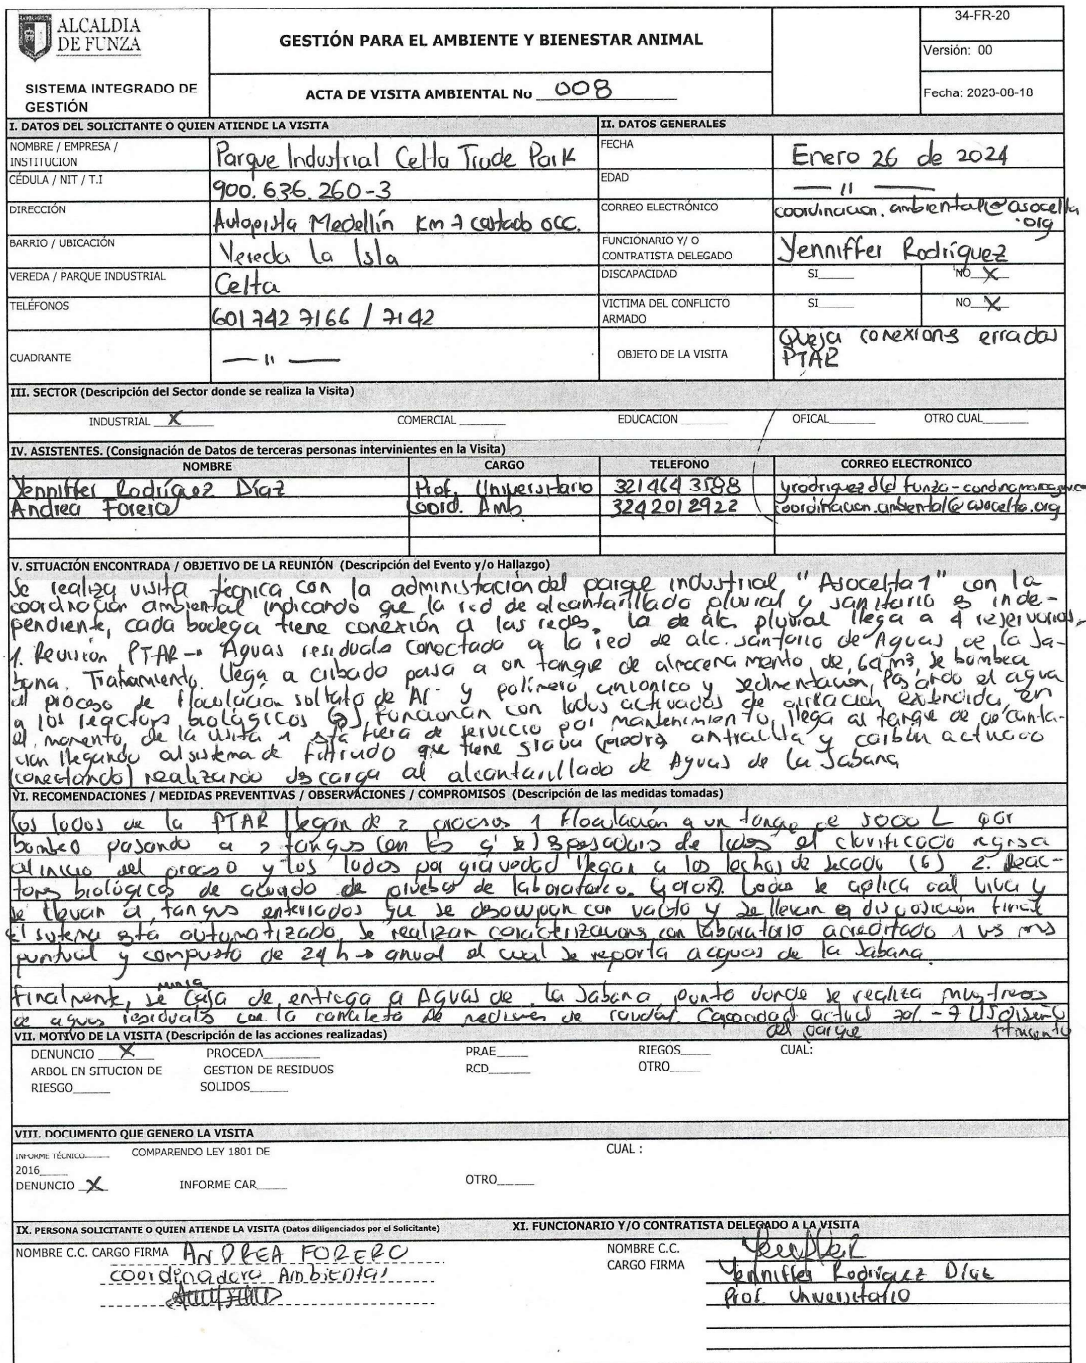 ALCALDIA
DE FUNZA
SISTEMA INTEGRADO DE
GESTIÓN
GESTIÓN PARA EL AMBIENTE Y BIENESTAR ANIMAL
ACTA DE VISITA AMBIENTAL No 008
34-FR-20
Versión: 00
Fecha: 2023-08-10
I. DATOS DEL SOLICITANTE O QUIEN ATIENDE LA VISITA
II. DATOS GENERALES
NOMBRE / EMPRESA /
INSTITUCION
Parque Industrial Celta Trade Park
FECHA
Enero 26 de 2024
CÉDULA / NIT / T.I
900.636.260-3
EDAD
— 11 —
DIRECCIÓN
Autopista Medellín Km 7 costado occ.
CORREO ELECTRÓNICO
coordinacion.ambiental@asocelta
.org
BARRIO / UBICACIÓN
Vereda la Isla
FUNCIONARIO Y/ O
CONTRATISTA DELEGADO
Yenniffer Rodríguez
VEREDA / PARQUE INDUSTRIAL
Celta
DISCAPACIDAD
SI____ NO X
TELÉFONOS
601 742 7166 / 7142
VICTIMA DEL CONFLICTO
ARMADO
SI____ NO X
CUADRANTE
— 11 —
OBJETO DE LA VISITA
Queja conexions erradas
PTAR
III. SECTOR (Descripción del Sector donde se realiza la Visita)
INDUSTRIAL X COMERCIAL____ EDUCACION____ OFICAL____ OTRO CUAL____
IV. ASISTENTES. (Consignación de Datos de terceras personas intervinientes en la Visita)
NOMBRE CARGO TELEFONO CORREO ELECTRONICO
Yenniffer Rodríguez Díaz Prof. Universitario 321 464 3588
Andrea Forero Coord. Amb 3242012922 coordinacion.ambiental@asocelta.org
V. SITUACIÓN ENCONTRADA / OBJETIVO DE LA REUNIÓN (Descripción del Evento y/o Hallazgo)
Se realiza visita técnica con la administación del parque industrial "Asocelta 1" con la
coordinacion ambiental indicando que la red de alcantarillado pluvial y sanitario es inde-
pendiente, cada bodega tiene conexión a las redes. la de alc. pluvial llega a 4 reservorios,
1. Revisión PTAR → Aguas residuals conectado a la red de alc. santario de Aguas de la Sa-
bana. Tratamiento. llega a cribado pasa a un tanque de almacenamento de m3, se bombea
al proceso de floculación sulfato de Al y polimero y sedimentacion, pasando el agua
a los reactors biológicos funcionan con lodos activados de aireacion extendida, en
el momento de la visita 1 está fuera de servicio por mantenimiento, llega al tanque de
llegando al sistema de filtrado que tiene grava (piedra) antracita y carbón activado
(conectando) realizando descarga al alcantarillado de Aguas de la Sabana
VI. RECOMENDACIONES / MEDIDAS PREVENTIVAS / OBSERVACIONES / COMPROMISOS (Descripción de las medidas tomadas)
Los lodos de la PTAR llegan de 2 procesos 1 floculación a un tanque de 5000 L por
bombeo pasando a 2 tanques espesadores de lodos el clarificado regresa
al inicio del proceso y los lodos por gravedad llegan a los lechos de secado (6) 2. Reac-
tores biológicos de acuerdo de pruebas de laboratorio. Lodos se aplica cal viva y
se llevan a tanques enterrados que se desocupan con vactor y se llevan a disposición final
El sistema está automatizado, se realizan caracterizacions con laboratorio acreditado 1 vs ms
puntual y compuesto de 24 h → anual el cual se reporta a aguas de la Sabana.
Finalmente, se caja de entrega a Aguas de la Sabana, punto donde se realiza muestreos
de aguas residuals con la canaleta de Capacidad actual 70%
del parque
VII. MOTIVO DE LA VISITA (Descripción de las acciones realizadas)
DENUNCIO X PROCEDA____ PRAE____ RIEGOS____ CUAL:
ARBOL EN SITUCION DE GESTION DE RESIDUOS RCD____ OTRO____
RIESGO____ SOLIDOS____
VIII. DOCUMENTO QUE GENERO LA VISITA
INFORME TÉCNICO____ COMPARENDO LEY 1801 DE CUAL :
2016____
DENUNCIO X INFORME CAR____ OTRO____
IX. PERSONA SOLICITANTE O QUIEN ATIENDE LA VISITA (Datos diligenciados por el Solicitante)
XI. FUNCIONARIO Y/O CONTRATISTA DELEGADO A LA VISITA
NOMBRE C.C. CARGO FIRMA ANDREA FORERO
coordinadora Ambiental
NOMBRE C.C.
CARGO FIRMA
Yenniffer Rodriguez Díaz
Prof. Universitario